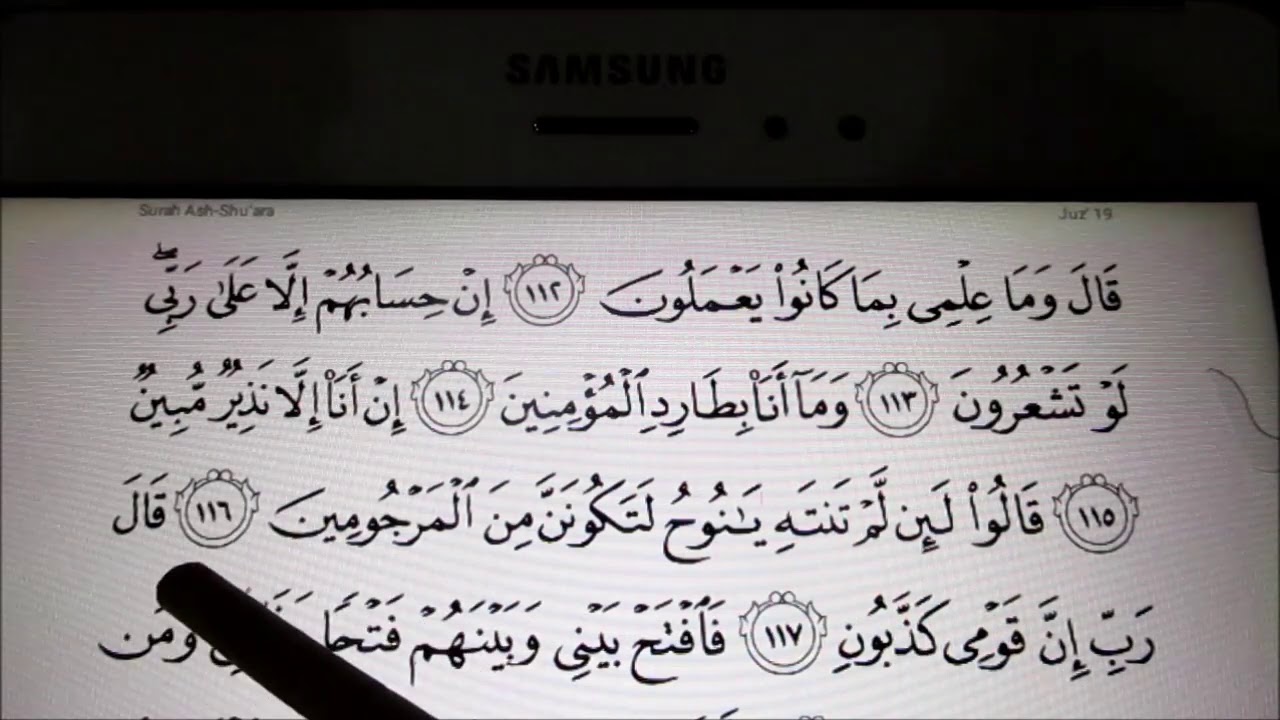 SAMSUNG
Surah Ash-Shu'ara Juz' 19
قَالَ وَمَا عِلْمِى بِمَا كَانُوا۟ يَعْمَلُونَ ١١٢ إِنْ حِسَابُهُمْ إِلَّا عَلَىٰ رَبِّى ۖ
لَوْ تَشْعُرُونَ ١١٣ وَمَآ أَنَا۠ بِطَارِدِ ٱلْمُؤْمِنِينَ ١١٤ إِنْ أَنَا۠ إِلَّا نَذِيرٌ مُّبِينٌ
١١٥ قَالُوا۟ لَئِن لَّمْ تَنتَهِ يَـٰنُوحُ لَتَكُونَنَّ مِنَ ٱلْمَرْجُومِينَ ١١٦ قَالَ
رَبِّ إِنَّ قَوْمِى كَذَّبُونِ ١١٧ فَٱفْتَحْ بَيْنِى وَبَيْنَهُمْ فَتْحًا وَمَن